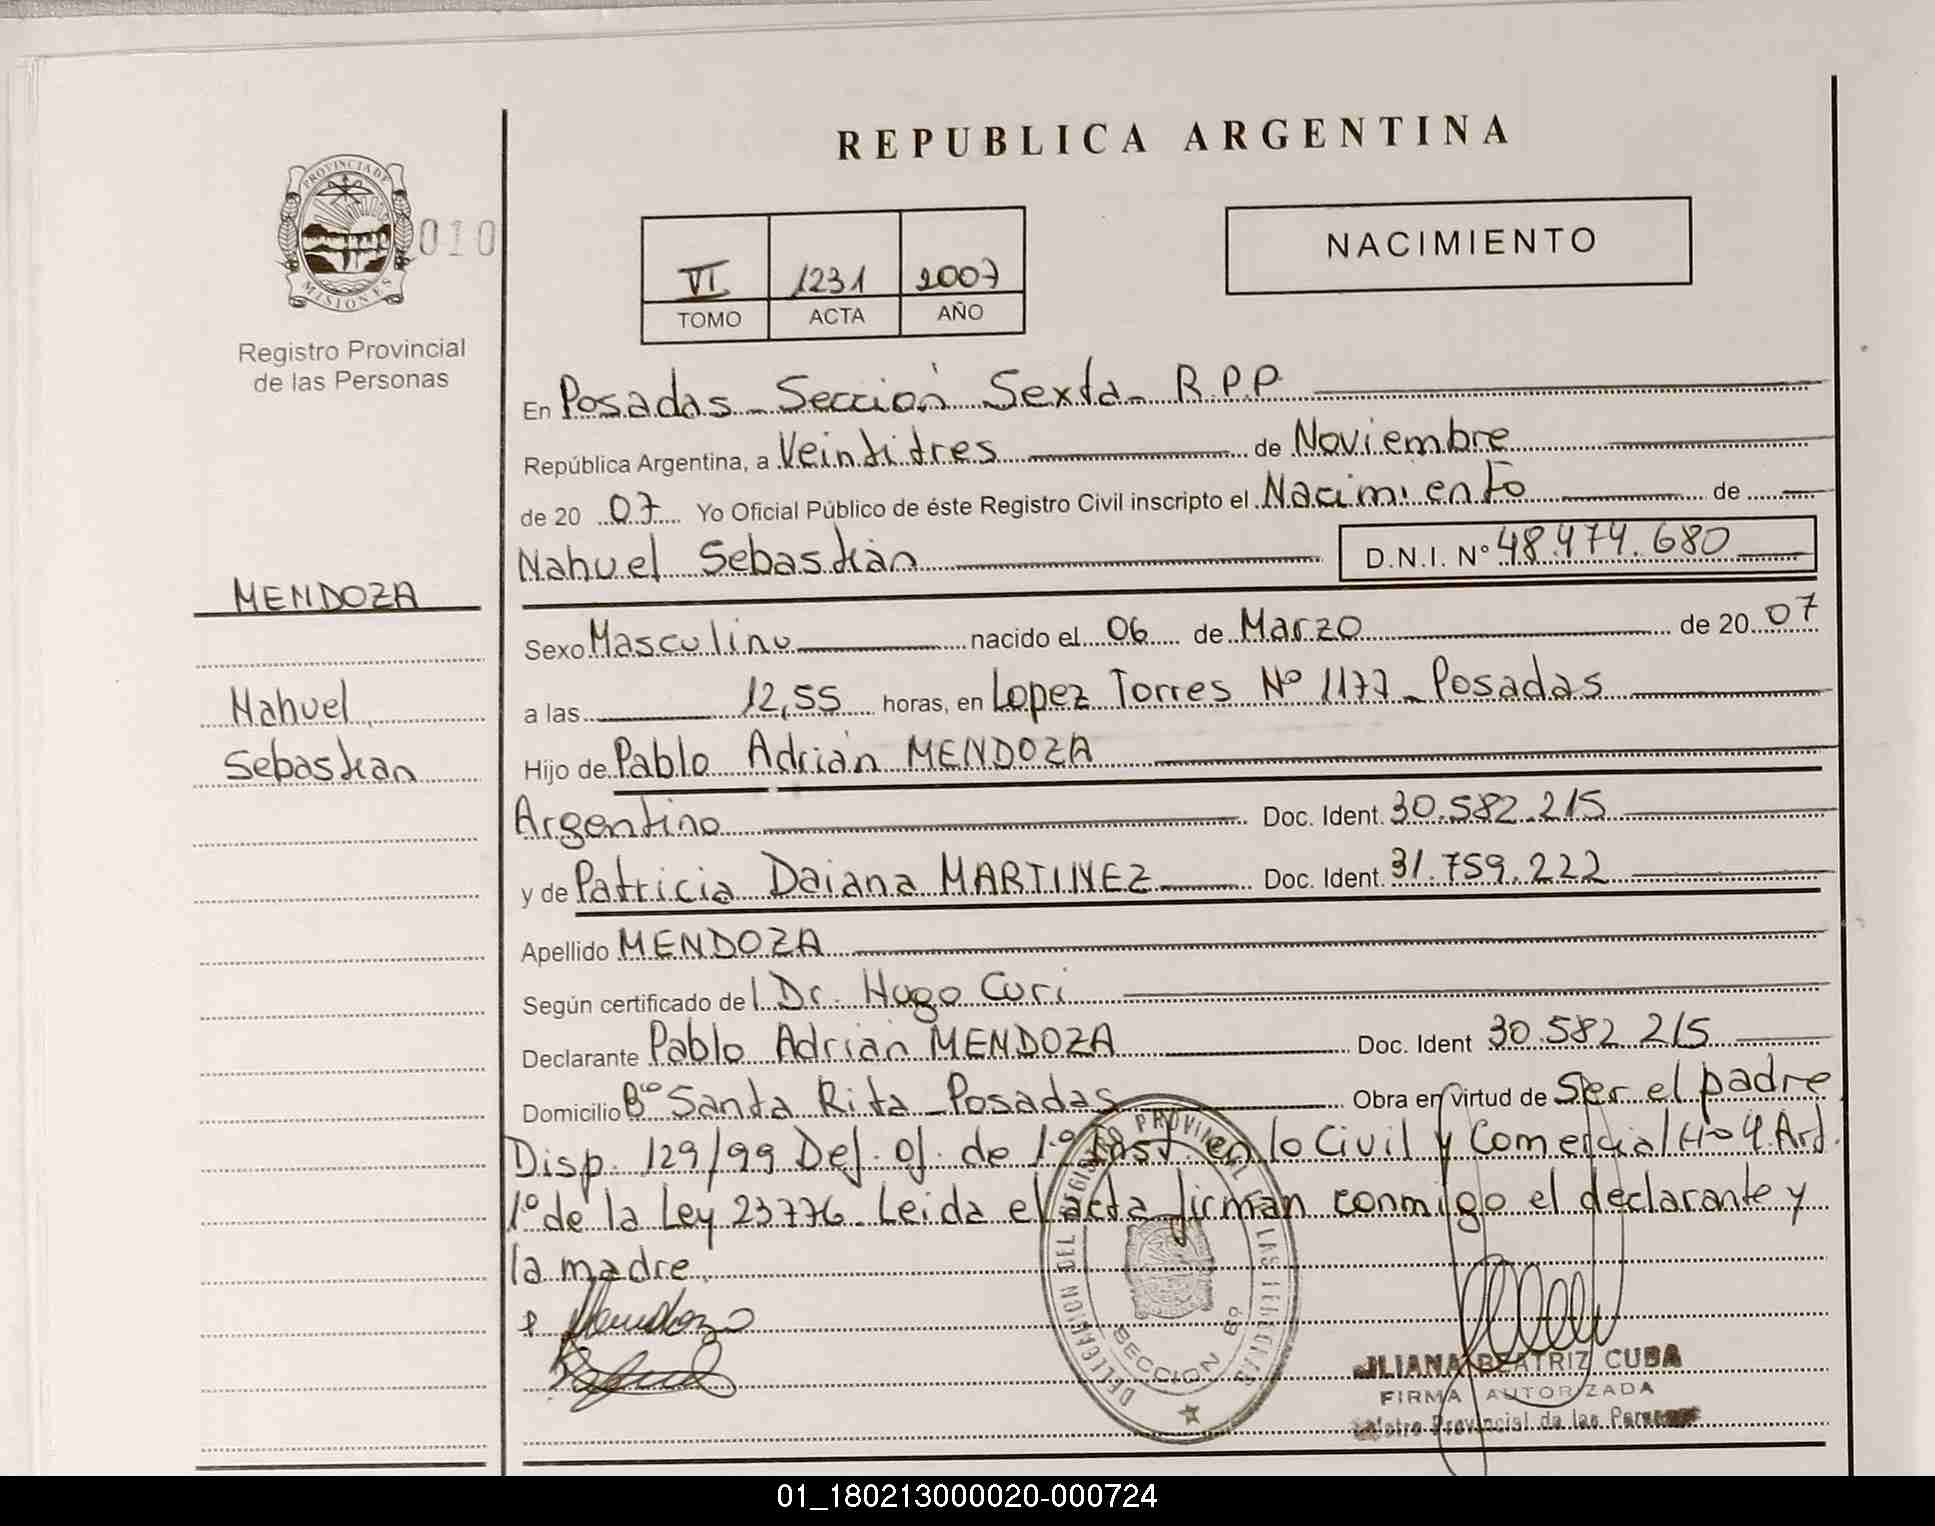 REPUBLICA ARGENTINA
PROVINCIA DE MISIONES
010
Registro Provincial
de las Personas
VI 1231 2007
TOMO ACTA AÑO
NACIMIENTO
En Posadas - Sección Sexta - R.P.P.
República Argentina, a Veintitres de Noviembre
de 20 07 Yo Oficial Público de éste Registro Civil inscripto el Nacimiento de
Nahuel Sebastián D.N.I. Nº 48.474.680
MENDOZA
Sexo Masculino nacido el 06 de Marzo de 20 07
Nahuel
a las 12,55 horas, en Lopez Torres Nº 1177 - Posadas
Sebastian
Hijo de Pablo Adrián MENDOZA
Argentino Doc. Ident. 30.582.215
y de Patricia Daiana MARTINEZ Doc. Ident. 31.759.222
Apellido MENDOZA
Según certificado del Dr. Hugo Curi
Declarante Pablo Adrián MENDOZA Doc. Ident 30.582 215
Domicilio Bº Santa Rita - Posadas Obra en virtud de Ser el padre
Disp. 129/99 Def. Of. de 1º Inst. en lo Civil y Comercial Nº 4. Art.
1º de la Ley 23776. Leida el acta firman conmigo el declarante y
la madre.
Mendoza
DELEGACION DEL REGISTRO PROVINCIAL DE LAS PERSONAS
SECCION 6º
BEATRIZ CUBA
FIRMA AUTORIZADA
Provincial de las
01_180213000020-000724